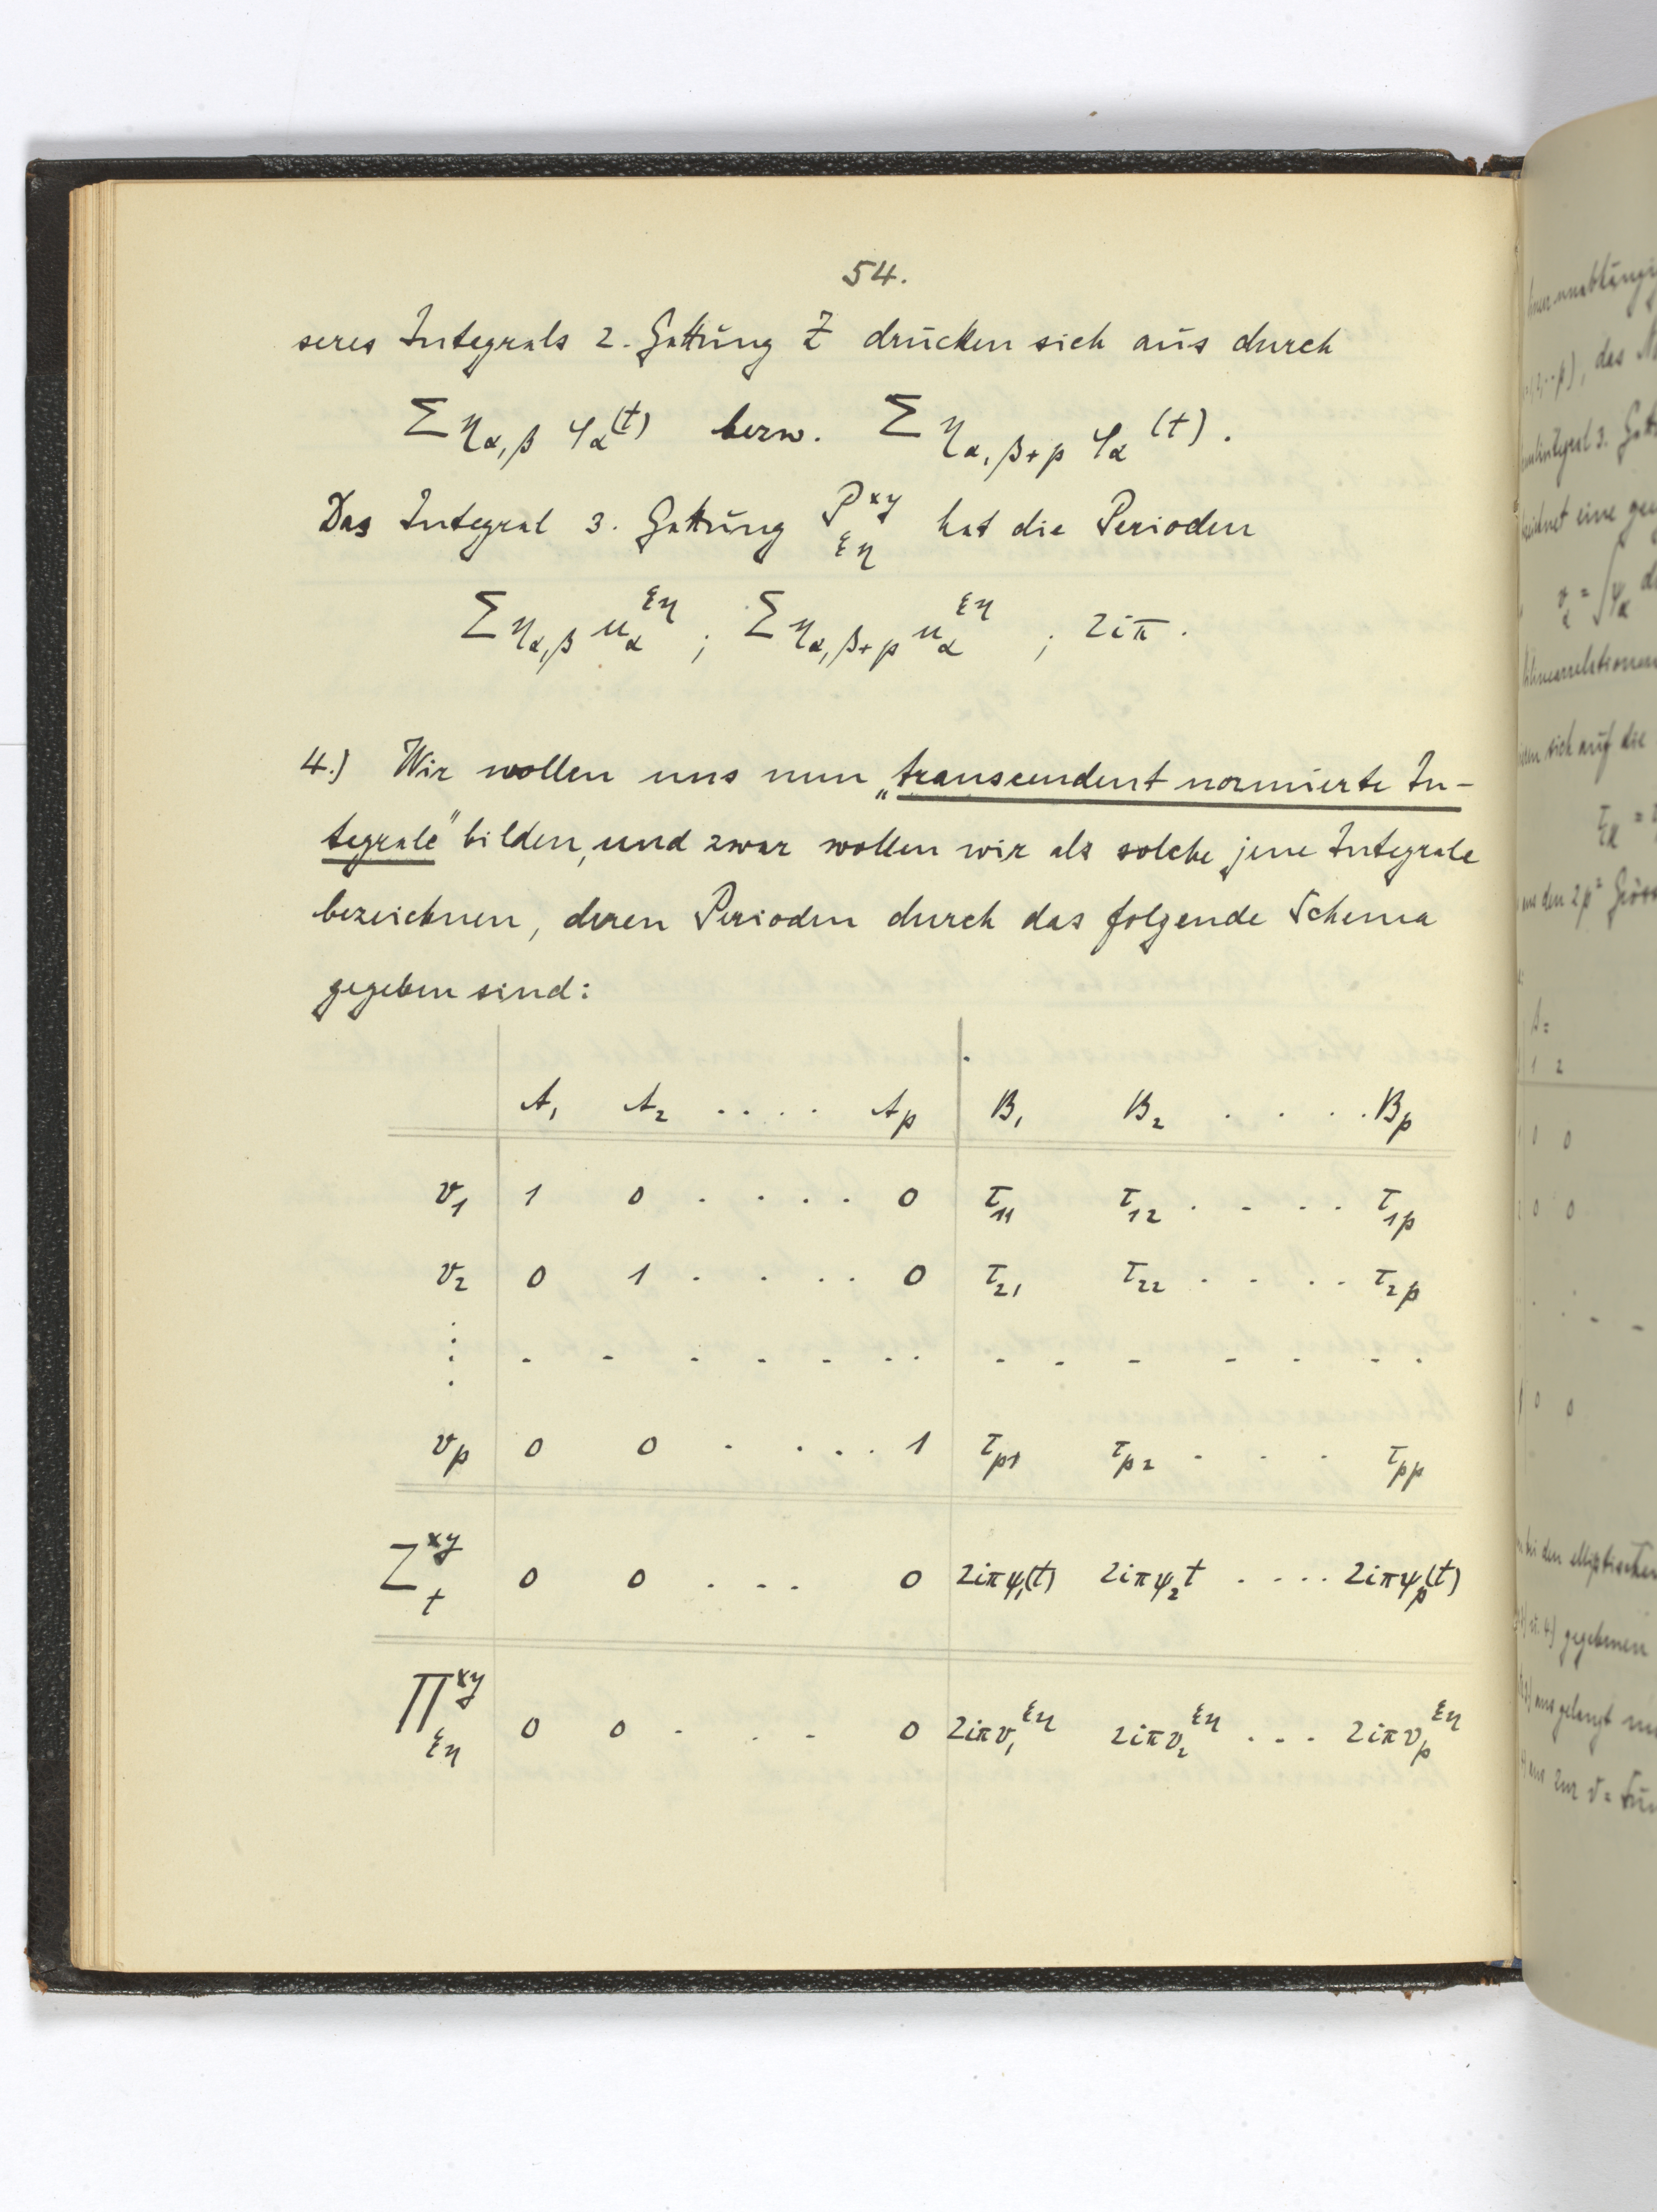 54.
seres Integrals 2. Gattung Z drücken sich aus durch
Σ η_{α,β} φ_α(t) bezw. Σ η_{α,β+p} φ_α(t).
Das Integral 3. Gattung P^{xy}_{ξη} hat die Perioden
Σ η_{α,β} u_α^{ξη} ; Σ η_{α,β+p} u_α^{ξη} ; 2iπ.
4.) Wir wollen uns nun „transcendent normierte In-
tegrale" bilden, und zwar wollen wir als solche jene Integrale
bezeichnen, deren Perioden durch das folgende Schema
gegeben sind:
A_1 A_2 .... A_p B_1 B_2 .... B_p
v_1 1 0 .... 0 τ_{11} τ_{12} .... τ_{1p}
v_2 0 1 .... 0 τ_{21} τ_{22} .... τ_{2p}
v_p 0 0 .... 1 τ_{p1} τ_{p2} ... τ_{pp}
Z^{xy}_t 0 0 ... 0 2iπψ_1(t) 2iπψ_2t .... 2iπψ_p(t)
Π^{xy}_{ξη} 0 0 ... 0 2iπv_1^{ξη} 2iπv_2^{ξη} ... 2iπv_p^{ξη}
das
eine
sich auf die
aus den 2p²
1 2
0 0
0 0
0 0
bei den elliptischen
gegebenen
gelangt
zur